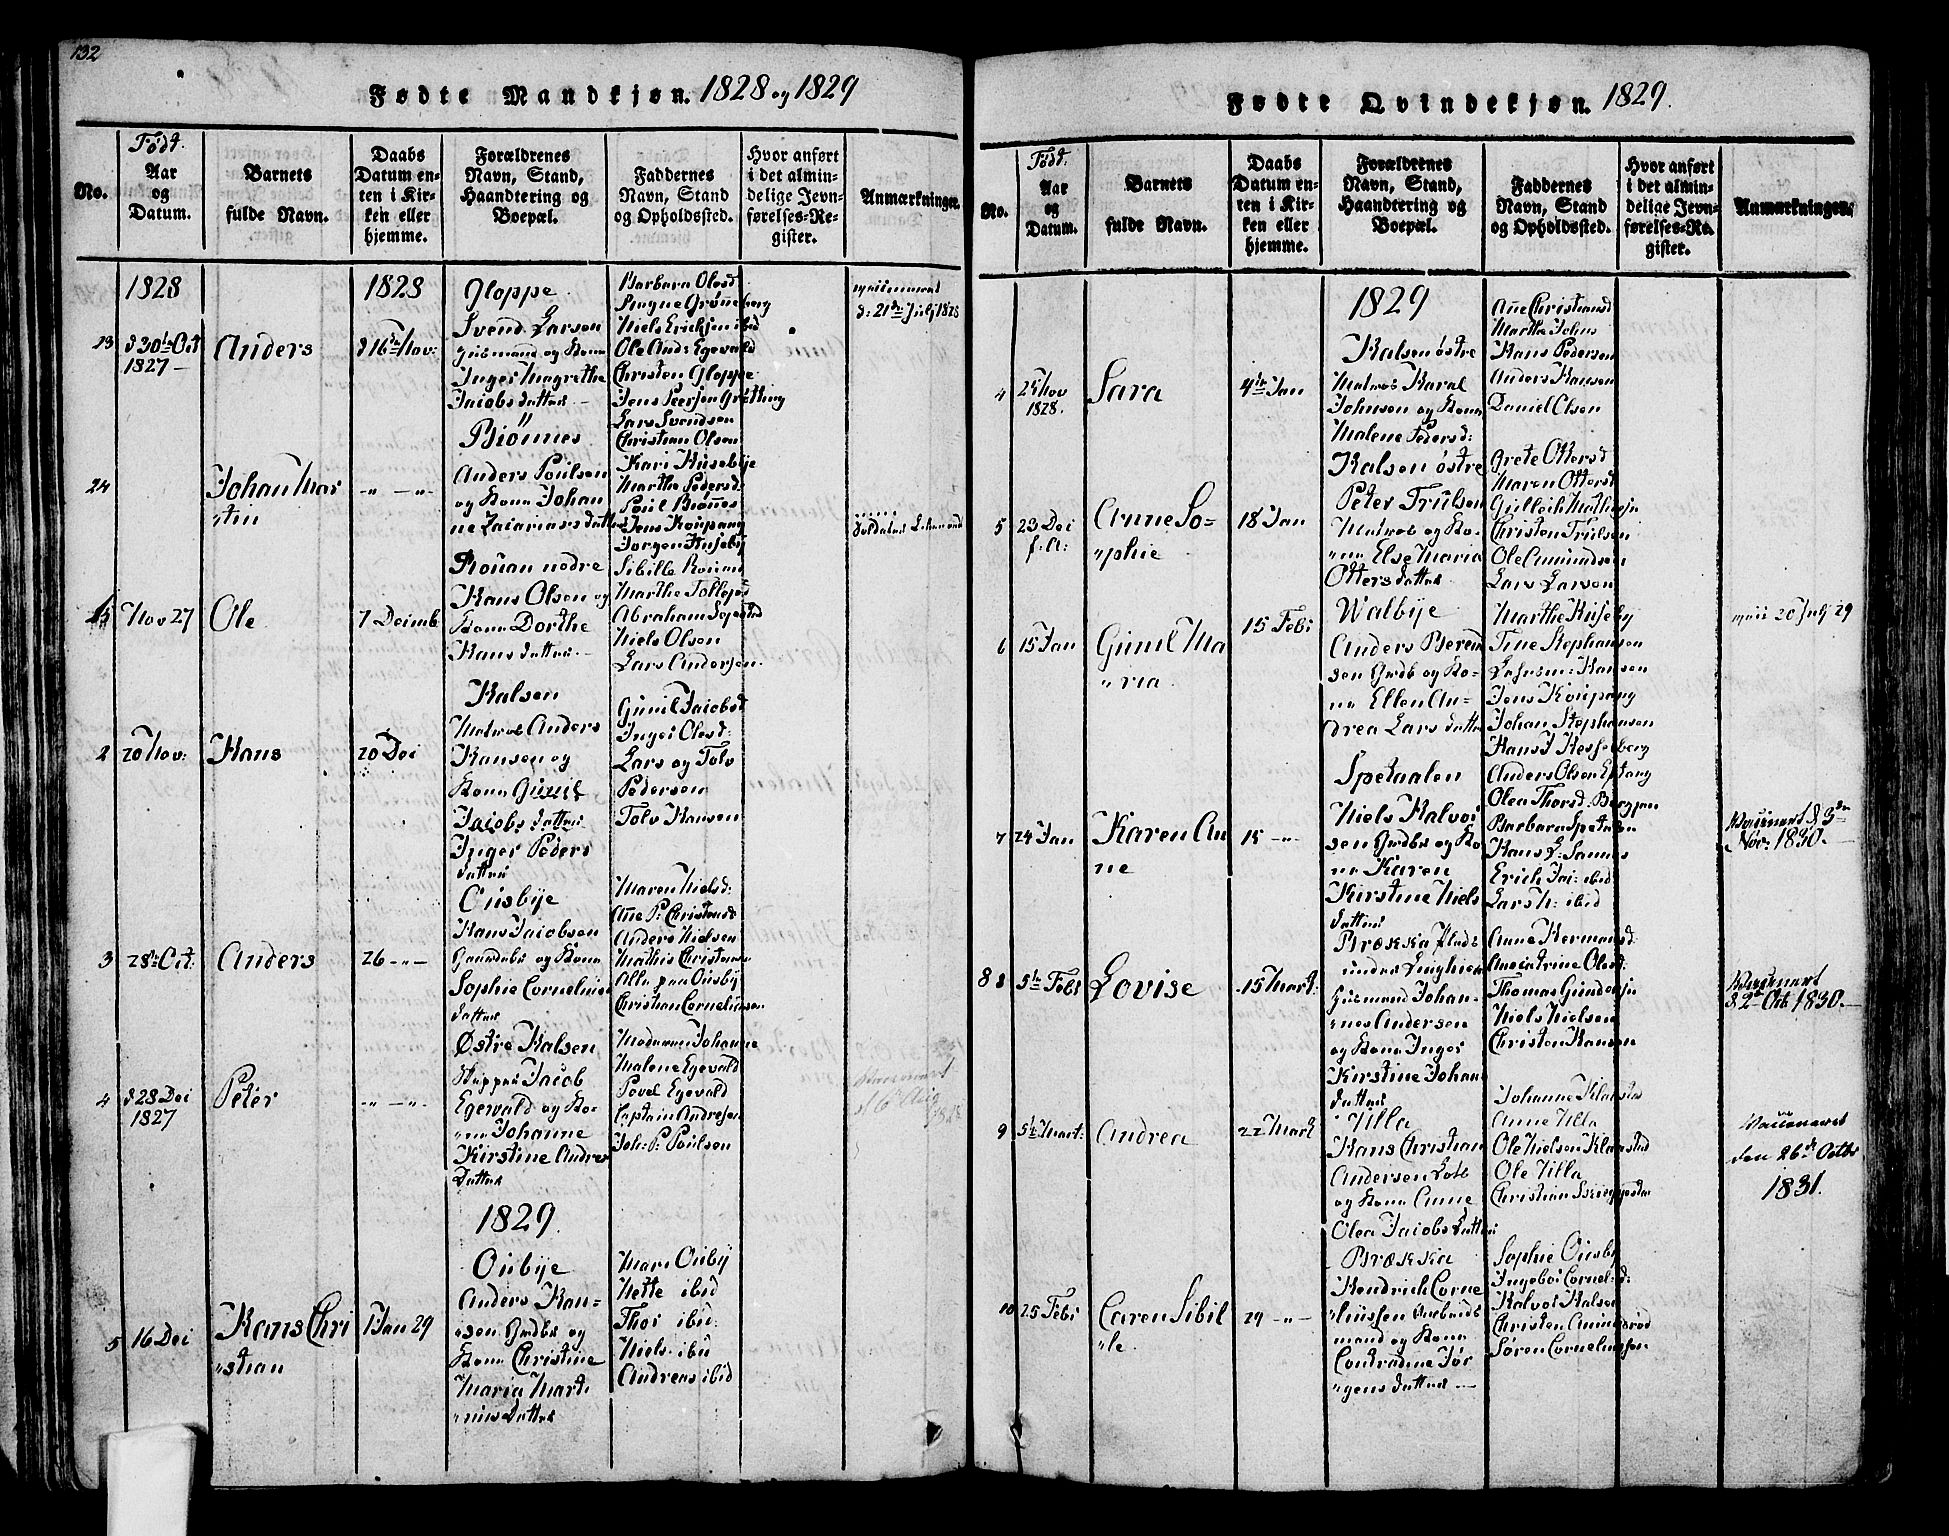 132
Fødte Mandkjøn. 1828 og 1829
No.
Født.
Aar
og
Datum.
Barnets
fulde Navn.
Daabs
Datum en-
ten i Kir-
ken eller
hjemme.
Forældrenes
Navn, Stand,
Haandtering og
Boepæl.
Faddernes
Navn, Stand
og Opholdssted.
Hvor anført
i det almin-
delige Jevn-
førelses-Re-
gister.
Anmærkninger.
1828
1828
23
d 30te Oct
1827
Anders
d 16de Nov:
Gloppe
Svend Larsen
Huusmand og Kone
Inger Magrethe
Jacobs datter
Barbara Olesd
Niels Ericksen ibid
Ole And: Egewald
Christen Gloppe
Lars Svendsen
Christian Olsen
d: 21de Julj 1828
24
Johan Mar
"tin
" — "
Biönnes
Anders Poulsen
og Kone Johan
Kari Huusebye
Martha Pedersd:
Poul Biönnes
Jens Koupang
Jørgen Huuseby
15
Nov 27
Ole
7 Decmb
Rouan nedre
Hans Olsen og
Kone Dorthe
Hans datter
Sibille Rouan
Niels Olsen
Lars Andersen
2
20 Nov:
Hans
20 Dec
Kalsen
Matros Anders
Hansen og
Kone Gunil
Jacobs datter
Inger Peders
datter
Gunil Jacobsd
Inger Olesd:
Lars og Tolv
Pedersen
Tolv Hansen
3
28de Oct:
Anders
26 — " —
Ousbye
Hans Jacobsen
Gaardbr og Kone
Sophie Cornelius
datter
Maren Nielsd:
Anne P: Christensd
Anders Nielsen
Mathis Christens
Alle paa Ousby
Christian Corneliussen
4
d 28 Dec
1827
Peter
" — " —
Østre Kalsen
Skipper Jacob
Egewald og Ko-
"ne Johanne
Kirstine Anders
Datter
Madamme Johanne
Malene Egewald
Povel Egewald
Captain Andresen
Joh: P: Poulsen
1829
5
16 Dec
Hans Chri
"stian
1 Jan 29
Ousbye
Anders Han-
"sen Grdbr og
Kone Christine
Maria Mart:
"nius datter
Mari Ousby
Mette ibid
Thor ibid:
Niels ibid
Andreas ibid
Fødte Qvindekjøn. 1829.
No.
Født.
Aar
og
Datum.
Barnets
fulde Navn.
Daabs
Datum en-
ten i Kir-
ken eller
hjemme.
Forældrenes
Navn, Stand,
Haandtering og
Boepæl.
Faddernes
Navn, Stand
og Opholdssted.
Hvor anført
i det almin-
delige Jevn-
førelses-Re-
gister.
Anmærkninger.
1829
4
25 Nov
1828.
Sara
4de Jan
Kalsen østre
Matros Haral
Johnsen og Kone
Malene Pedersd:
Anne Christiansd
Marthe Johns
Hans Pedersen
Anders Hansen
Daniel Olsen
5
23 Dec
f. A:
Anne So=
"phie
18 Jan
Kalsen østre
Peter Trulsen
Matros og Ko-
"ne Else Maria
Otters datter
Grete Ottersd
Maren Ottersd
Christen Trulsen
Ole Amundsen
Lars Larsen
6
15 Jan
Gunil Ma
"ria
15 Febr
Walbye
Anders Beren
sen Grdb og Ko-
ne Ellen An-
drea Lars datter
Marthe Huseby
Tine Stephansen
Jens Koupang
Johan Stephansen
Hans J Hesselberg
20 Julj 29
7
24 Jan
Karen An
ne
15 — " —
Spetaalen
Niels Halvor
sen Grdbr og Ko
ne Karen
Kirstine Niels
datter
Anders Olsen
Olea Thorsd:
Barbara Spetalen
Hans L: Sannes
Erich Jac: ibid
Lars N: ibid
Vaccineret d 3de
Nov: 1830.
8
5te Febr
Lovise
15 Mart:
Brækka Plads
under
Huusmand Johan-
"nes Andersen
og Kone Inger
Kirstine Johan
datter
Anne Hermansd:
Anecatrine Olesd:
Thomas Gundersen
Niels Nielsen
Christen Hansen
Vaccineret
d 2den Octb 1830.
9
5te Mart:
Andrea
22 Mart
Ulla
Hans Christian
Andersen Lods
og Kone Anne
Olea Jacobs datter
Johanne Klavsta
Anne Ulla
Ole Nielsen Klavstad
Ole Ulla
Vaccineret
den 26de Octbr
1831.
10
25 Febr
Caren Sibil
"le.
29 — " —
Brække
Hendrich Corne
"liussen Arbeids
mand og Kone
Conradine Jør
"gens datter —
Sophie Ousby
Ingebor Cornel: d:
Halvor Kalsen
Christen Amundsrød
Søren Corneliussen